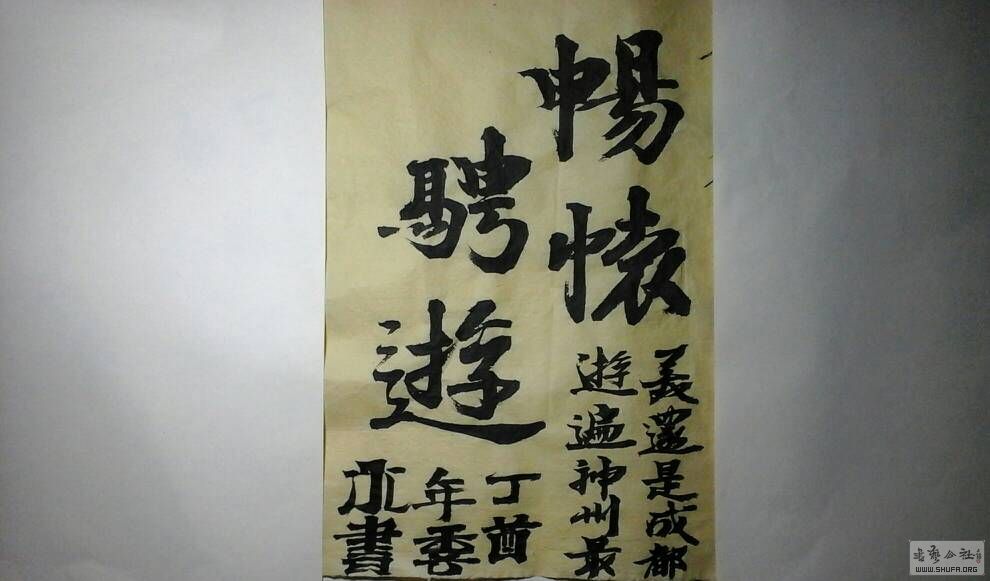 暢懷
騁遊
遊遍神州最
美還是成都
丁酉
年
書
书艺公社
WWW.SHUFA.ORG